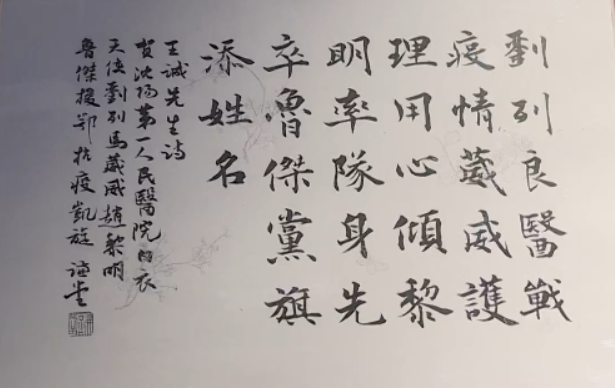 劉列良醫戰
疫情葳威護
理用心傾黎
明率隊身先
卒魯傑黨旗
添姓名
王誠先生詩
贺沈揚第一人民醫院白衣
天使劉列馬葳威趙黎明
魯傑援鄂抗疫凱旋